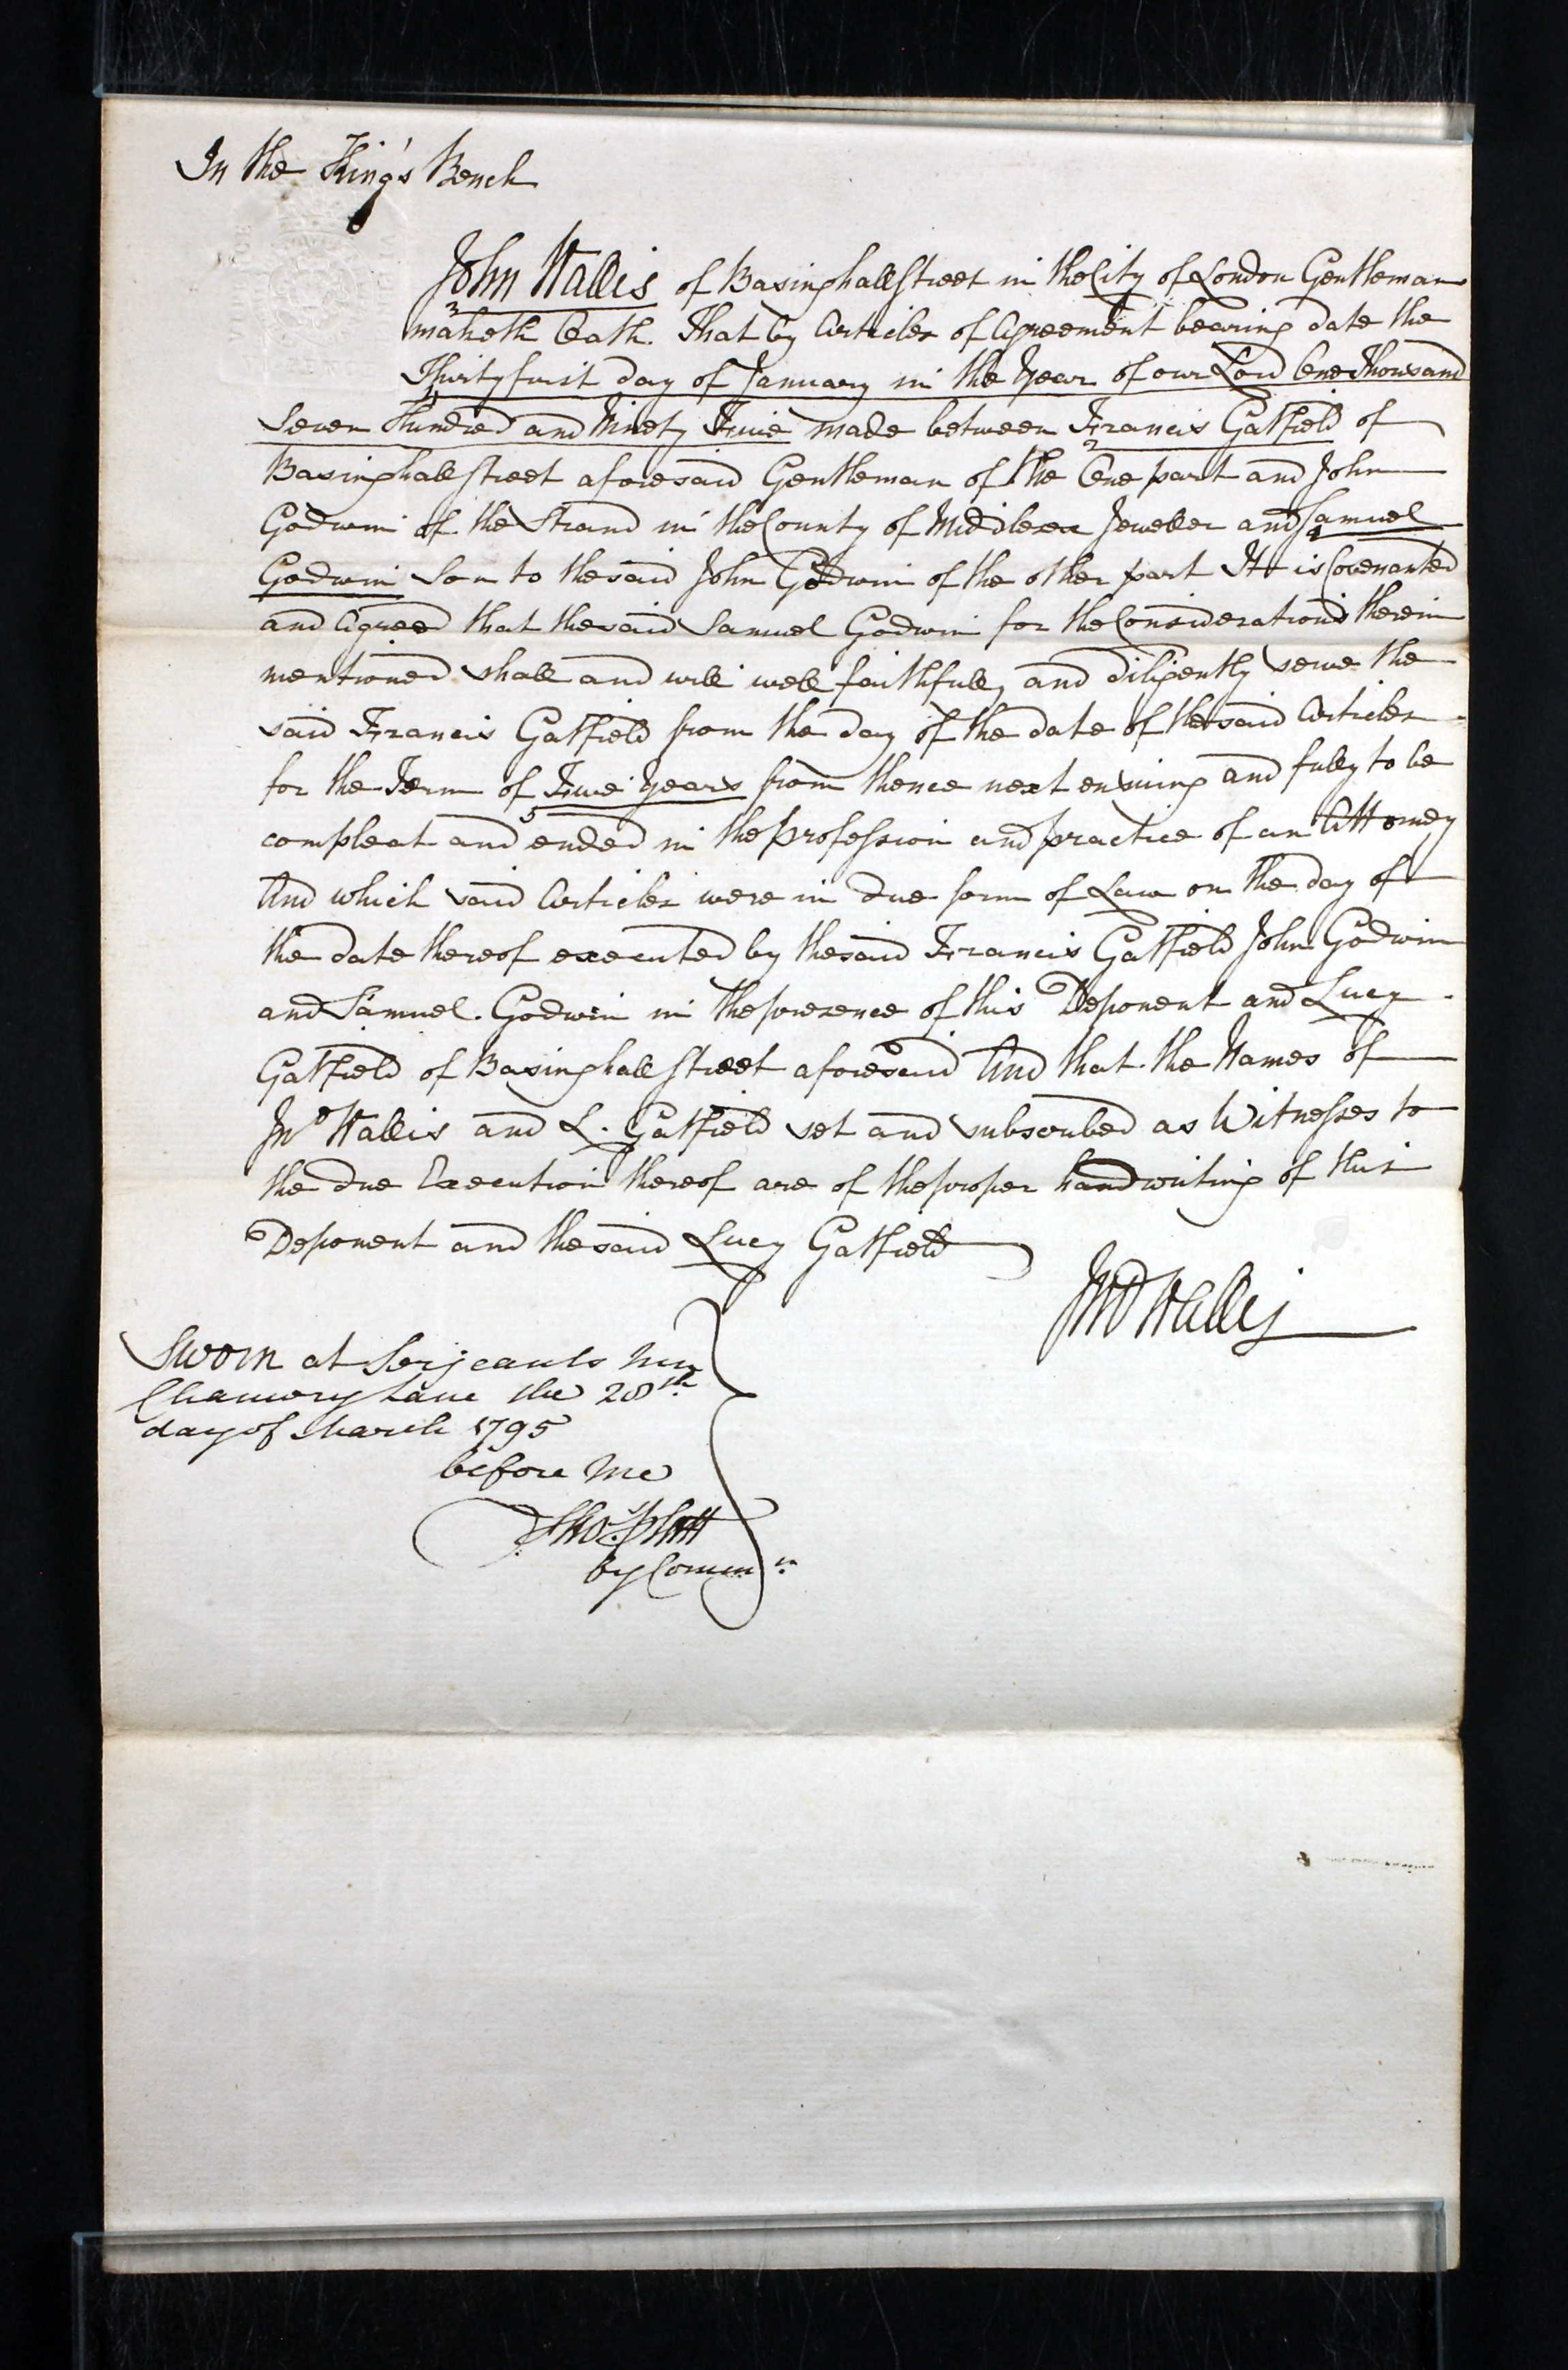 In the King's Bench
John Wallis of Basinghall Street in the City of London Gentleman
maketh Oath That by Articles of Agreement bearing date the
Thirty first day of January in the Year of our Lord One Thousand
Seven Hundred and Ninety Five made between Francis Gatfield of
Basinghall Street aforesaid Gentleman of the One part and John
Godwin of the Strand in the County of Middlesex Jeweller and Samuel
Godwin Son to the said John Godwin of the other part It is Covenanted
and Agreed that the said Samuel Godwin for the Considerations therein
mentioned shall and will well faithfully and diligently serve the
said Francis Gatfield from the day of the date of the said Articles
for the Term of Five Years from thence next ensuing and fully to be
compleat and ended in the profession and practice of an Attorney
And which said Articles were in due form of Law on the day of
the date thereof executed by the said Francis Gatfield John Godwin
and Samuel Godwin in the presence of this Deponent and Lucy
Gatfield of Basinghall Street aforesaid And that the Names of
Jno Wallis and L. Gatfield set and subscribed as Witnesses to
the due Execution thereof are of the proper handwriting of this
Deponent and the said Lucy Gatfield
Jno Wallis
Sworn at Serjeants Inn
Chancery Lane the 28th
day of March 1795
before me
Thos. Platt
by Commn.